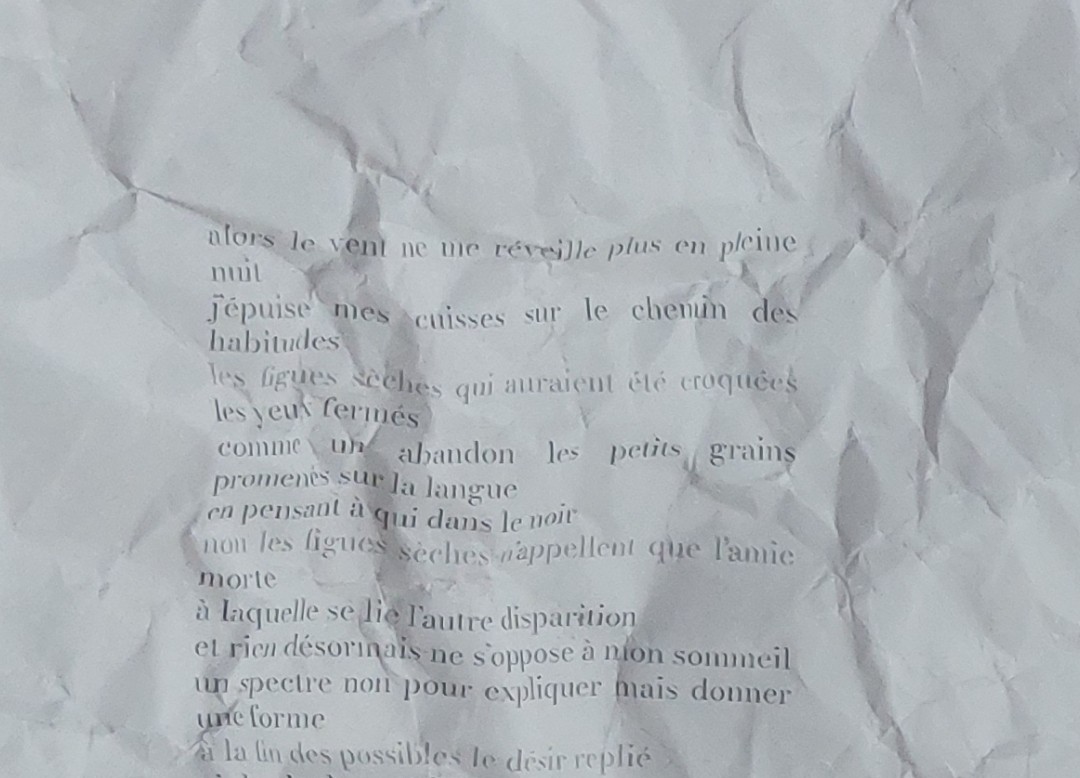 alors le vent ne me réveille plus en pleine
nuit
j'épuise mes cuisses sur le chemin des
habitudes
les figues sèches qui auraient été croquées
les yeux fermés
comme un abandon les petits grains
promenés sur la langue
en pensant à qui dans le noir
non les figues sèches n'appellent que l'amie
morte
à laquelle se lie l'autre disparition
et rien désormais ne s'oppose à mon sommeil
un spectre non pour expliquer mais donner
une forme
à la fin des possibles le désir replié